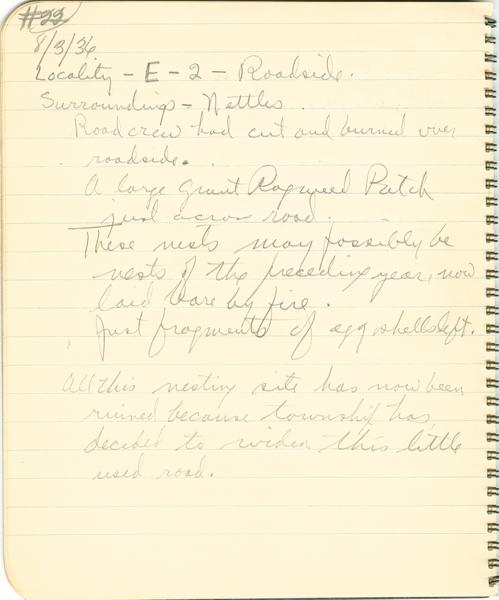 #22
8/3/36
Locality - E - 2 - Roadside.
Surroundings - Nettles.
Road crew had cut and burned over
roadside.
A large Giant Ragweed Patch
just across road.
These nests may possibly be
nests of the preceding year, now
laid bare by fire.
Just fragments of egg shells left.
All this nesting site has now been
ruined because township has
decided to widen this little
used road.